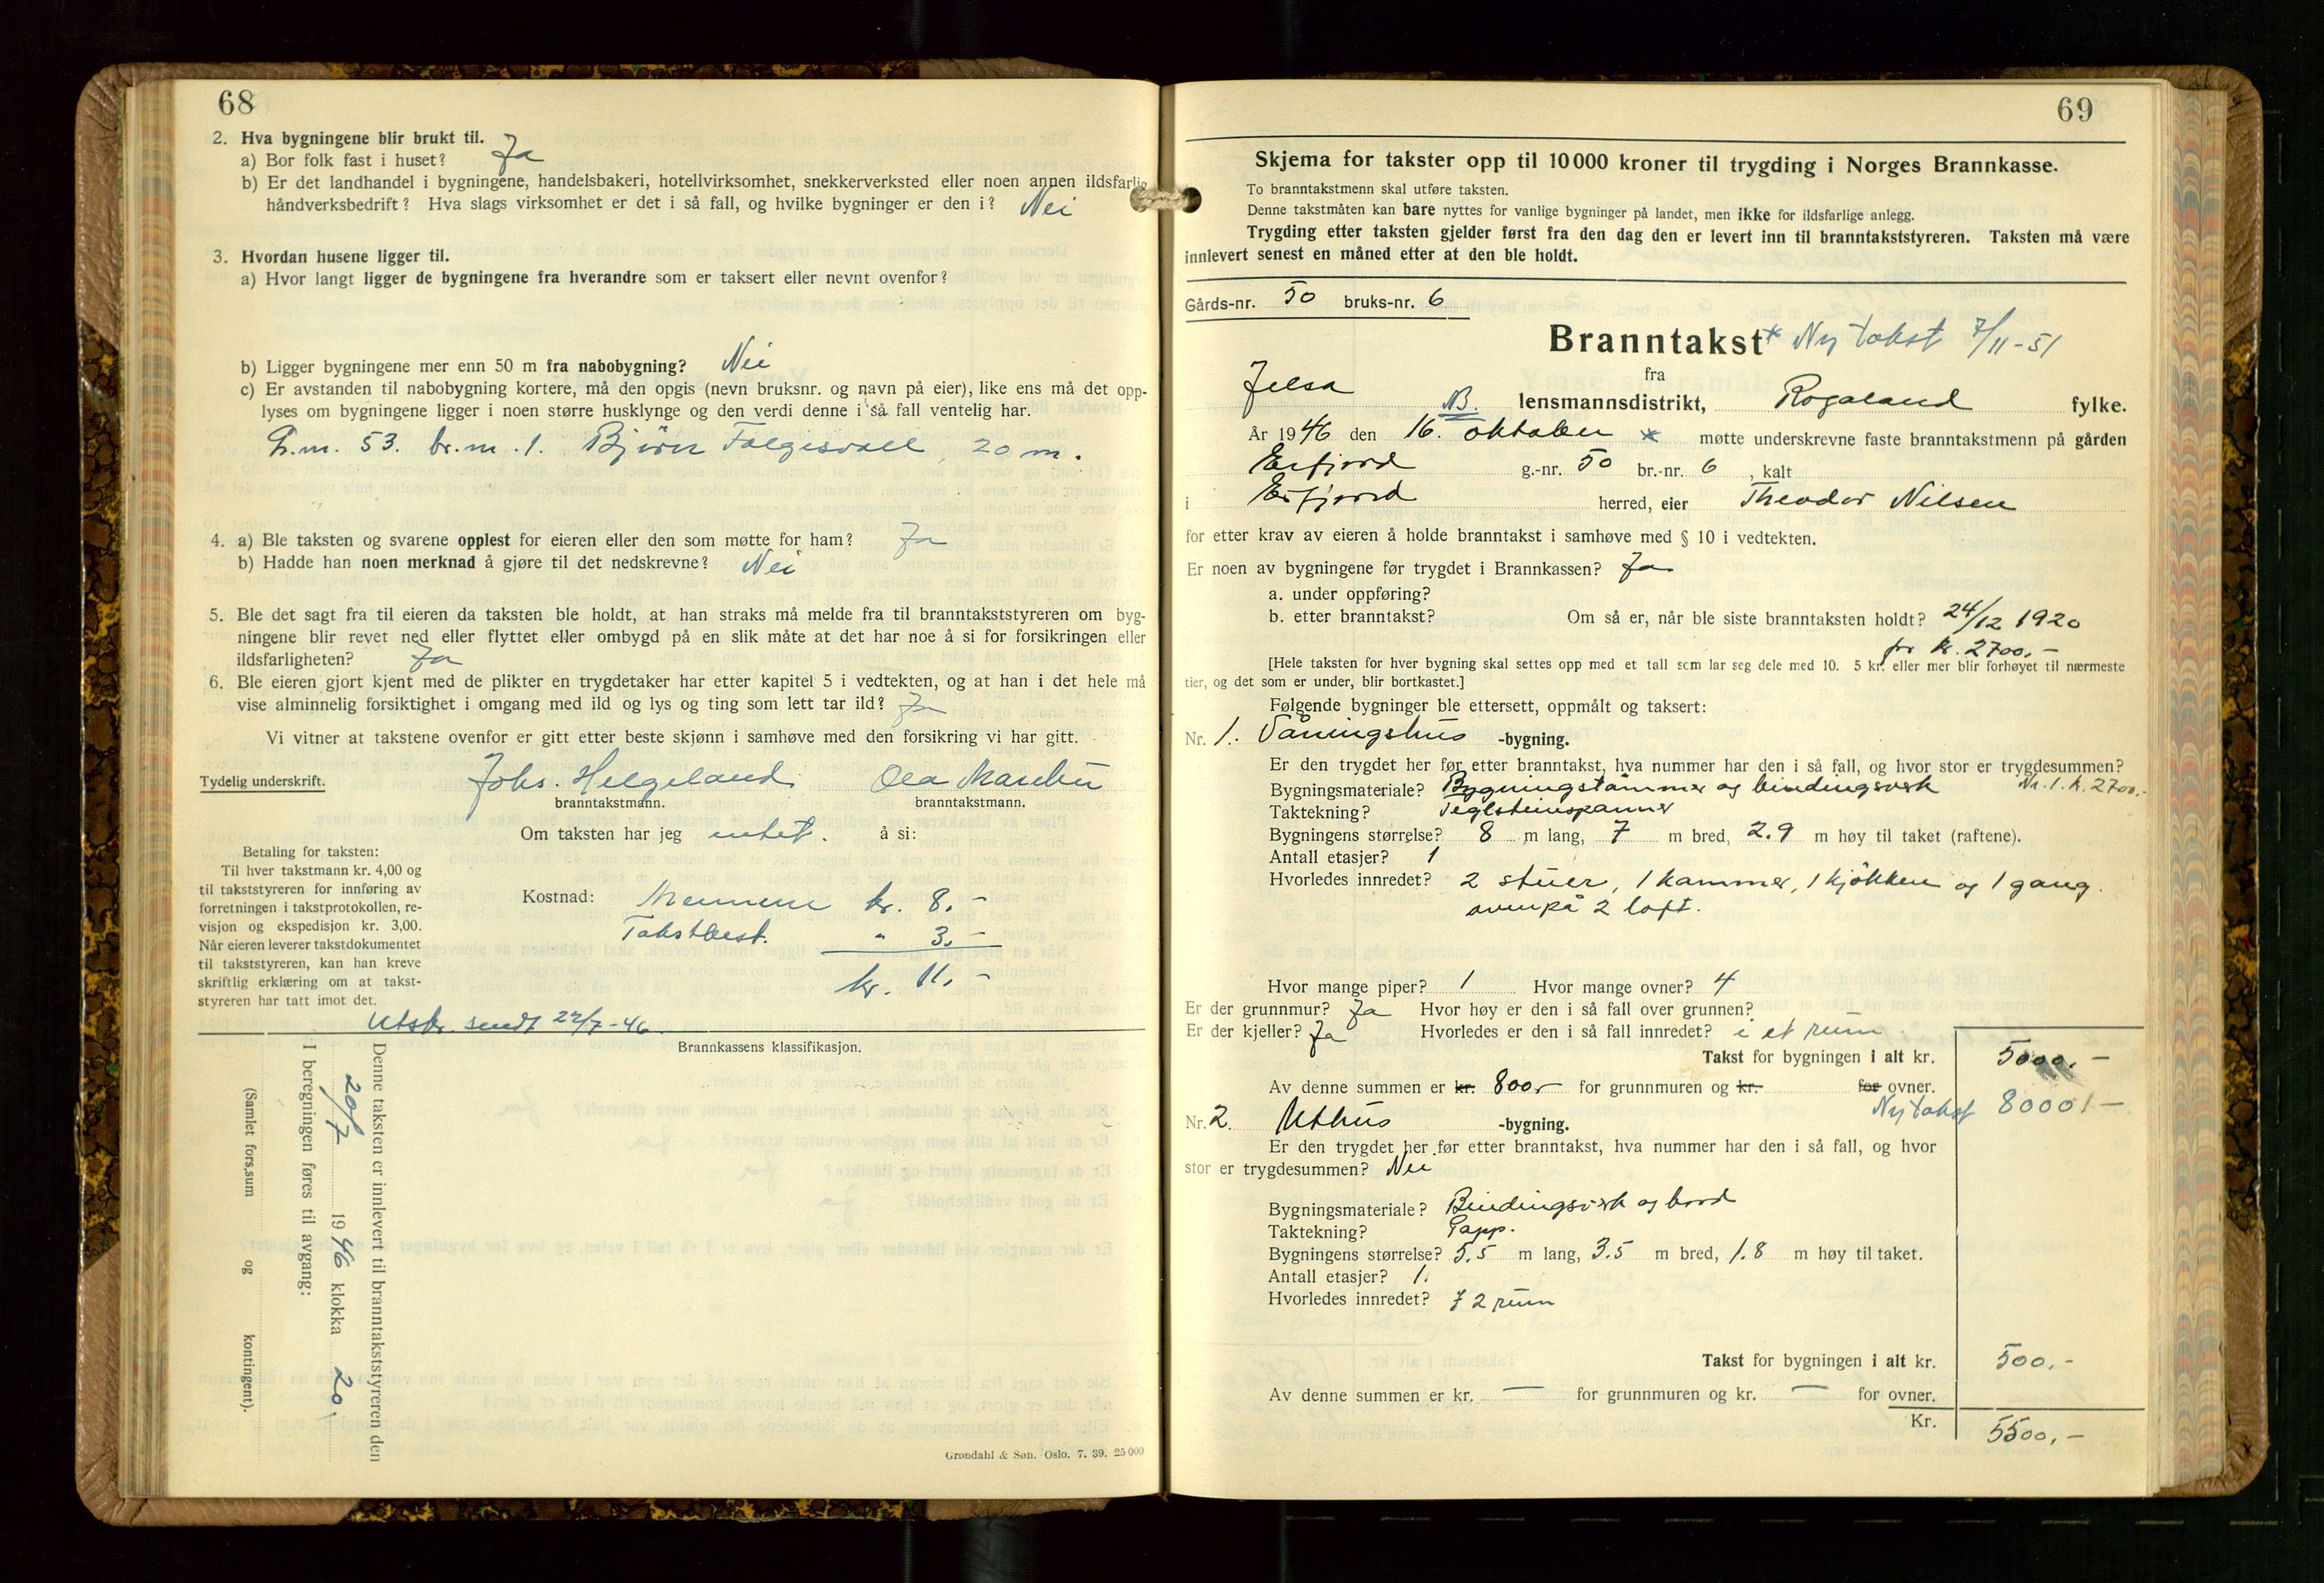 68
2. Hva bygningene blir brukt til.
a) Bor folk fast i huset? Ja
b) Er det landhandel i bygningene, handelsbakeri, hotellvirksomhet, snekkerverksted eller noen annen ildsfarlig
håndverksbedrift? Hva slags virksomhet er det i så fall, og hvilke bygninger er den i? Nei
3. Hvordan husene ligger til.
a) Hvor langt ligger de bygningene fra hverandre som er taksert eller nevnt ovenfor?
b) Ligger bygningene mer enn 50 m fra nabobygning? Nei
c) Er avstanden til nabobygning kortere, må den opgis (nevn bruksnr. og navn på eier), like ens må det opp-
lyses om bygningene ligger i noen større husklynge og den verdi denne i så fall ventelig har.
G.nr. 53. br.nr. 1. Bjørn 20 m.
4. a) Ble taksten og svarene opplest for eieren eller den som møtte for ham? Ja
b) Hadde han noen merknad å gjøre til det nedskrevne? Nei
5. Ble det sagt fra til eieren da taksten ble holdt, at han straks må melde fra til branntakststyreren om byg-
ningene blir revet ned eller flyttet eller ombygd på en slik måte at det har noe å si for forsikringen eller
ildsfarligheten? Ja
6. Ble eieren gjort kjent med de plikter en trygdetaker har etter kapitel 5 i vedtekten, og at han i det hele må
vise alminnelig forsiktighet i omgang med ild og lys og ting som lett tar ild? Ja
Vi vitner at takstene ovenfor er gitt etter beste skjønn i samhøve med den forsikring vi har gitt.
Tydelig underskrift. Johs. Helgeland Ola
branntakstmann. branntakstmann.
Om taksten har jeg intet. å si:
Betaling for taksten:
Til hver takstmann kr. 4,00 og
til takststyreren for innføring av
forretningen i takstprotokollen, re-
visjon og ekspedisjon kr. 3,00.
Når eieren leverer takstdokumentet
til takststyreren, kan han kreve
skriftlig erklæring om at takst-
styreren har tatt imot det.
Kostnad: Mennene kr. 8,-
Takstbest. " 3,-
kr. 11,-
Utskr. sendt 22/7-46
Brannkassens klassifikasjon.
Denne taksten er innlevert til branntakststyreren den
20/7 1946 klokka 20.
I beregningen føres til avgang:
(Samlet fors.sum og kontingent).
Grøndahl & Søn. Oslo. 7. 39. 25 000
69
Skjema for takster opp til 10 000 kroner til trygding i Norges Brannkasse.
To branntakstmenn skal utføre taksten.
Denne takstmåten kan bare nyttes for vanlige bygninger på landet, men ikke for ildsfarlige anlegg.
Trygding etter taksten gjelder først fra den dag den er levert inn til branntakststyreren. Taksten må være
innlevert senest en måned etter at den ble holdt.
Gårds-nr. 50 bruks-nr. 6
Branntakst * Ny takst 7/11-51
fra
Jelsa lensmannsdistrikt, Rogaland fylke.
NB.
År 1946 den 16. oktober * møtte underskrevne faste branntakstmenn på gården
Erfjord g.-nr. 50 br.-nr. 6, kalt
i Erfjord herred, eier Theodor Nilsen
for etter krav av eieren å holde branntakst i samhøve med § 10 i vedtekten.
Er noen av bygningene før trygdet i Brannkassen? Ja
a. under oppføring?
b. etter branntakst? Om så er, når ble siste branntaksten holdt? 24/12 1920
for kr. 2700,-
[Hele taksten for hver bygning skal settes opp med et tall som lar seg dele med 10. 5 kr. eller mer blir forhøyet til nærmeste
tier, og det som er under, blir bortkastet.]
Følgende bygninger ble ettersett, oppmålt og taksert:
Nr. 1. Våningshus -bygning.
Er den trygdet her før etter branntakst, hva nummer har den i så fall, og hvor stor er trygdesummen?
Nr. 1. k. 2700.-
Bygningsmateriale? Bygningstømmer og bindingsverk
Taktekning? Teglsteinspanner
Bygningens størrelse? 8 m lang, 7 m bred, 2.9 m høy til taket (raftene).
Antall etasjer? 1
Hvorledes innredet? 2 stuer, 1 kammer, 1 kjøkken og 1 gang.
ovenpå 2 loft.
Hvor mange piper? 1 Hvor mange ovner? 4
Er der grunnmur? Ja Hvor høy er den i så fall over grunnen?
Er der kjeller? Ja Hvorledes er den i så fall innredet? i et rum
Takst for bygningen i alt kr. 5000.-
Av denne summen er kr. 800,- for grunnmuren og kr. for ovner.
Ny takst 8000,-
Nr. 2. Uthus -bygning.
Er den trygdet her før etter branntakst, hva nummer har den i så fall, og hvor
stor er trygdesummen? Nei
Bygningsmateriale? Bindingsverk og bord
Taktekning? Papp.
Bygningens størrelse? 5.5 m lang, 3.5 m bred, 1.8 m høy til taket.
Antall etasjer? 1.
Hvorledes innredet? I 2 rum
Takst for bygningen i alt kr. 500.-
Av denne summen er kr. — for grunnmuren og kr. — for ovner.
Kr. 5500,-